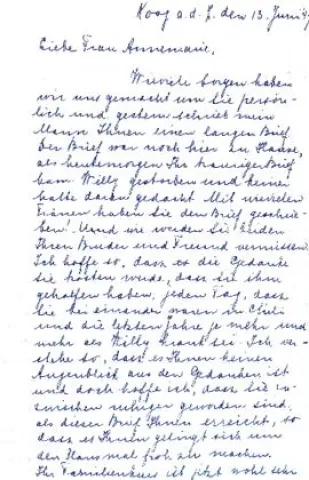 Koog a.d. Z. den 13. Juni
Liebe Frau Annemarie,
Wieviele Sorgen haben
wir uns gemacht um Sie persön-
lich und gestern schrieb mein
Mann Ihnen einen langen Brief
Der Brief war noch hier zu Hause,
als heutemorgen Ihr trauriger Brief
kam. Willy gestorben und keiner
hatte daran gedacht. Mit wievielen
Tränen haben Sie den Brief geschrie-
ben. Und wie werden Sie beiden
Ihren Bruder und Freund vermissen.
Ich hoffe so, dass es die Gedanke
sie trösten werde, dass sie ihm
geholfen haben, jeden Tag, dass
Sie bei einander waren in Chili
und die letzten Jahre je mehr und
mehr als Willy krank sei. Ich ver-
stehe so, dass es Ihnen keinen
Augenblick aus den Gedanken ist
und doch hoffe ich, dass Sie in-
zwischen ruhiger geworden sind,
als dieser Brief Ihnen erreicht, so
dass es Ihnen gelingt sich um
den Hans mal froh zu machen.
Ihr Familienhaus ist jetzt wohl sehr